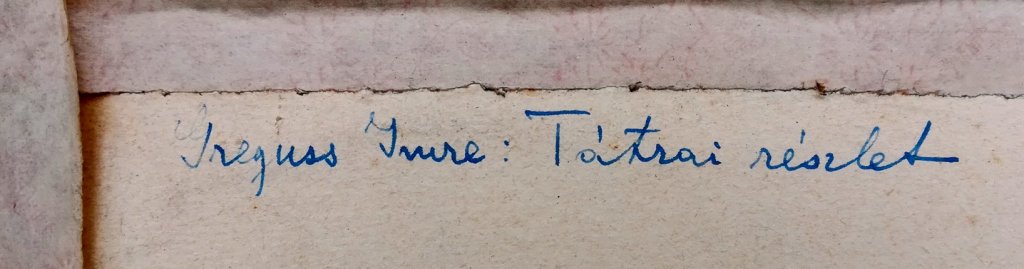 Greguss Imre: Tátrai részlet